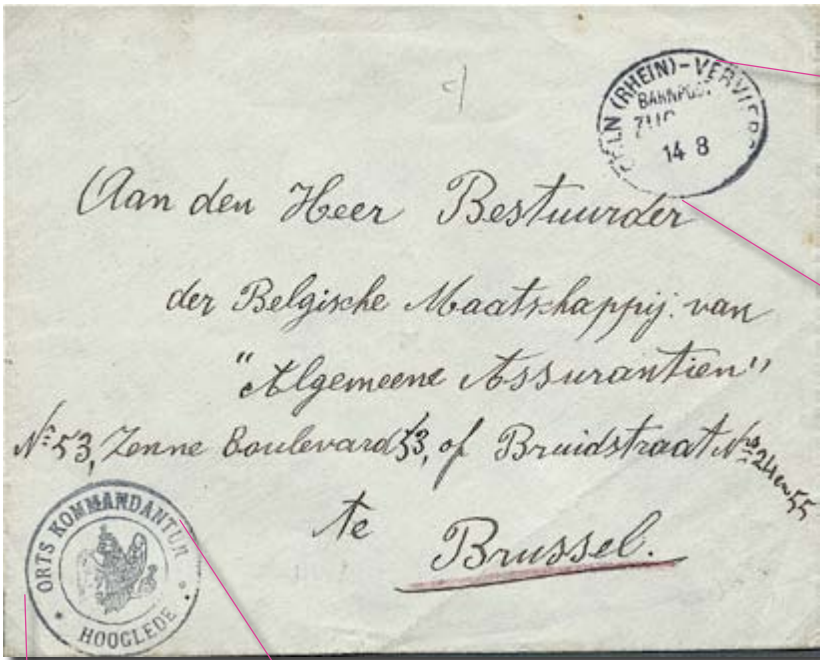 CÖLN (RHEIN) - VERVIERS
BAHNPOST
ZUG
14 8
Aan den Heer Bestuurder
der Belgische Maatschappij. van
"Algemeene Assurantien"
N° 53, Zenne Boulevard 53, of Bruidstraat Nos 24 en 55
te
Brussel.
ORTS KOMMANDANTUR
* HOOGLEDE *